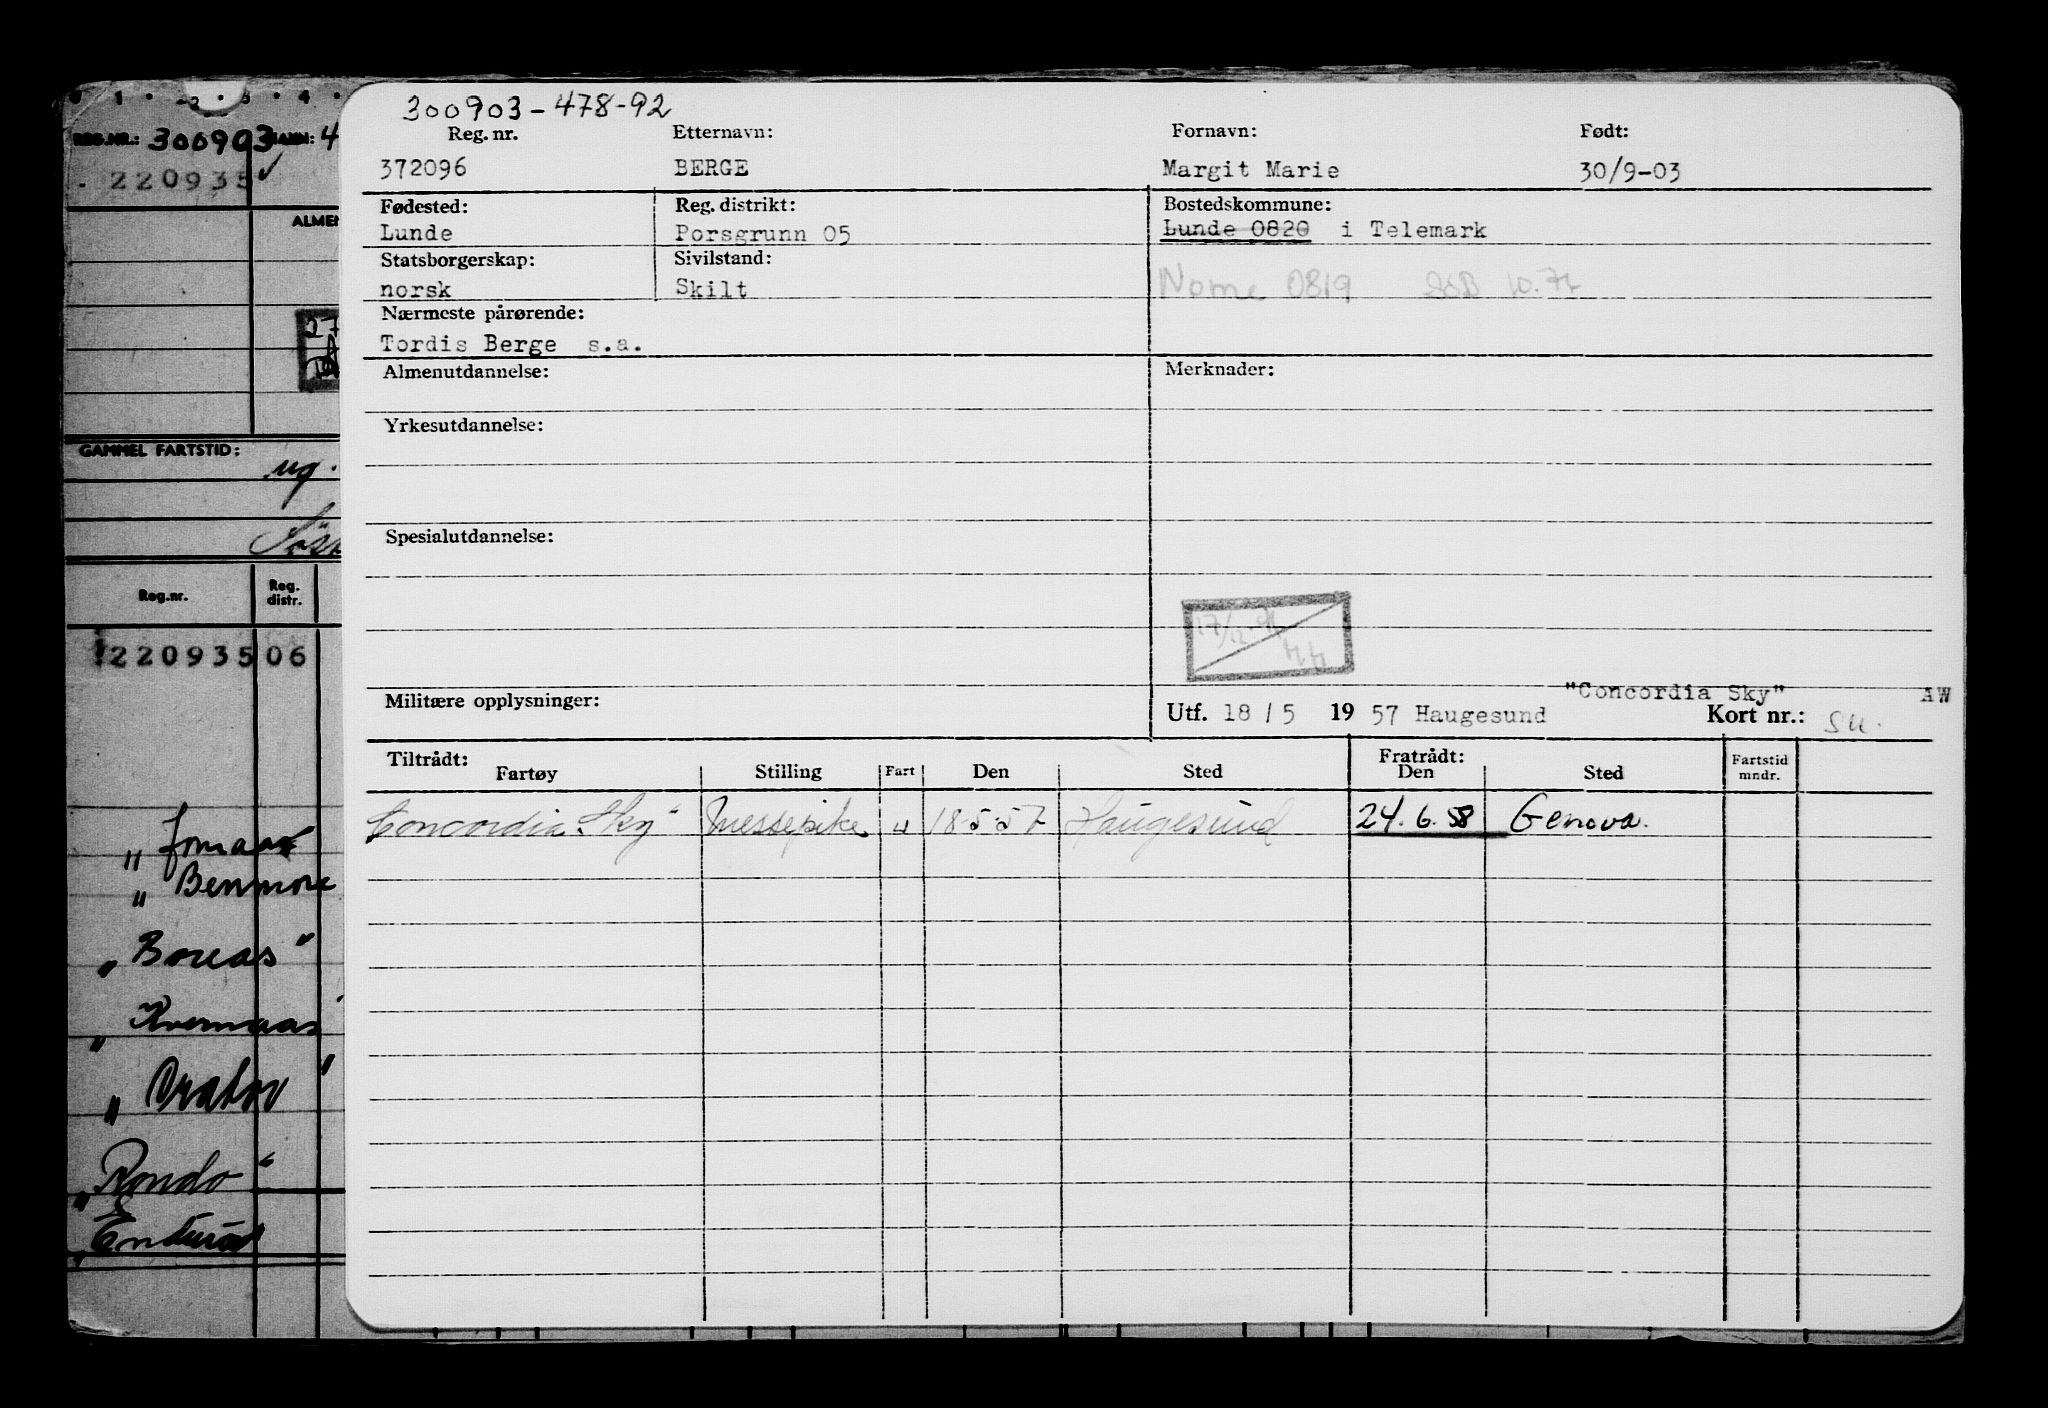 300903-478-92
Reg. nr. Etternavn: Fornavn: Født:
372096 BERGE Margit Marie 30/9-03
Fødested: Reg. distrikt: Bostedskommune:
Lunde Porsgrunn 05 Lunde 0820 i Telemark
Statsborgerskap: Sivilstand:
norsk Skilt Nome 0819
Nærmeste pårørende:
Tordis Berge s.a.
Almenutdannelse: Merknader:
Yrkesutdannelse:
Spesialutdannelse:
"Concordia Sky" AW
Militære opplysninger: Utf. 18 / 5 19 57 Haugesund Kort nr.:
Tiltrådt: Fratrådt: Fartstid mndr.
Fartøy Stilling Fart Den Sted Den Sted
"Concordia Sky" Messepike u 18-5-57 Haugesund 24.6.58 Genova.
0 1 2 3 4
REG.NR.: 300903 4
220935
ALMEN
GAMMEL FARTSTID:
ug.
Reg.nr. Reg. distr.
220935 06
" Benmore
" Boreas "
" Rondo "